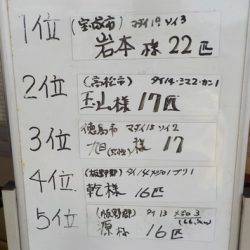 1位 (宝塚市) マダイ19 ソイ3
岩本 様 22匹
2位 (高松市) タイ14・コマ2・カン1
玉山様 17匹
3位 徳島市 マダイ15 ソイ2
旭 様 17
4位 (板野郡) タイ14 メジロ1 ブリ1
乾様 16匹
5位 (板野郡) タイ13 メジロ3
源様 16匹